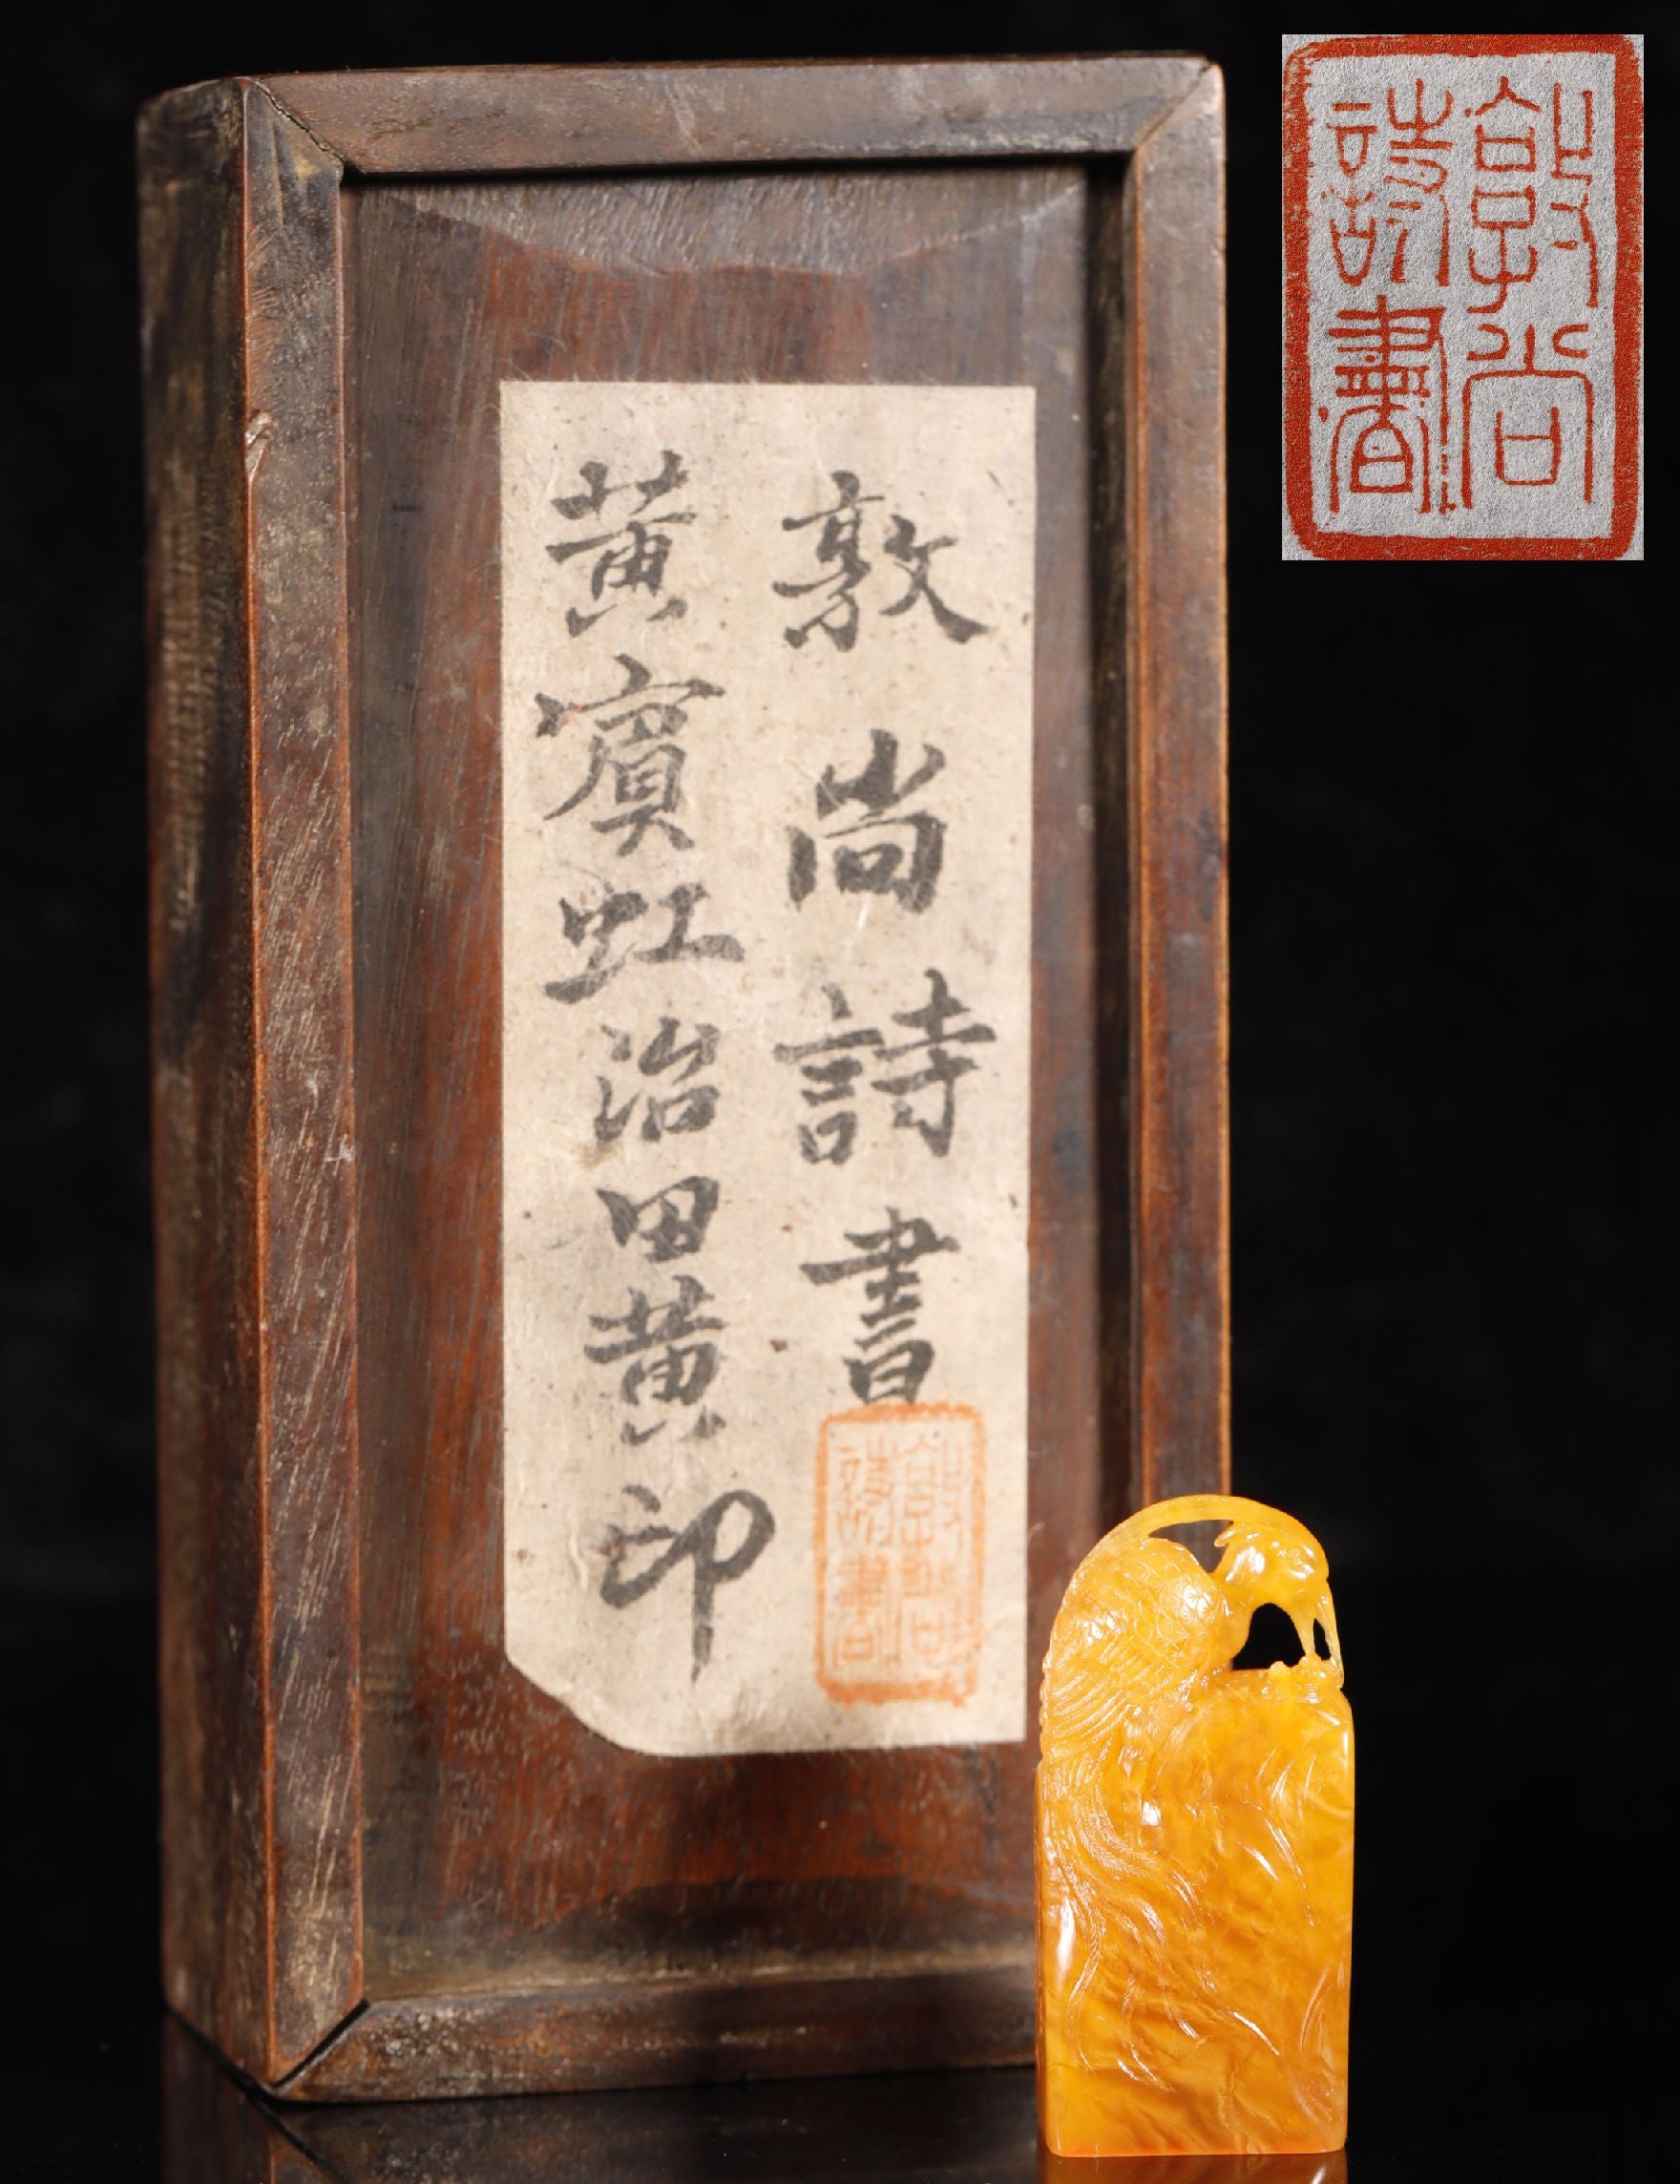 敦尚詩書
黃賓虹治田黃印
敦尚
詩書
敦尚
詩書